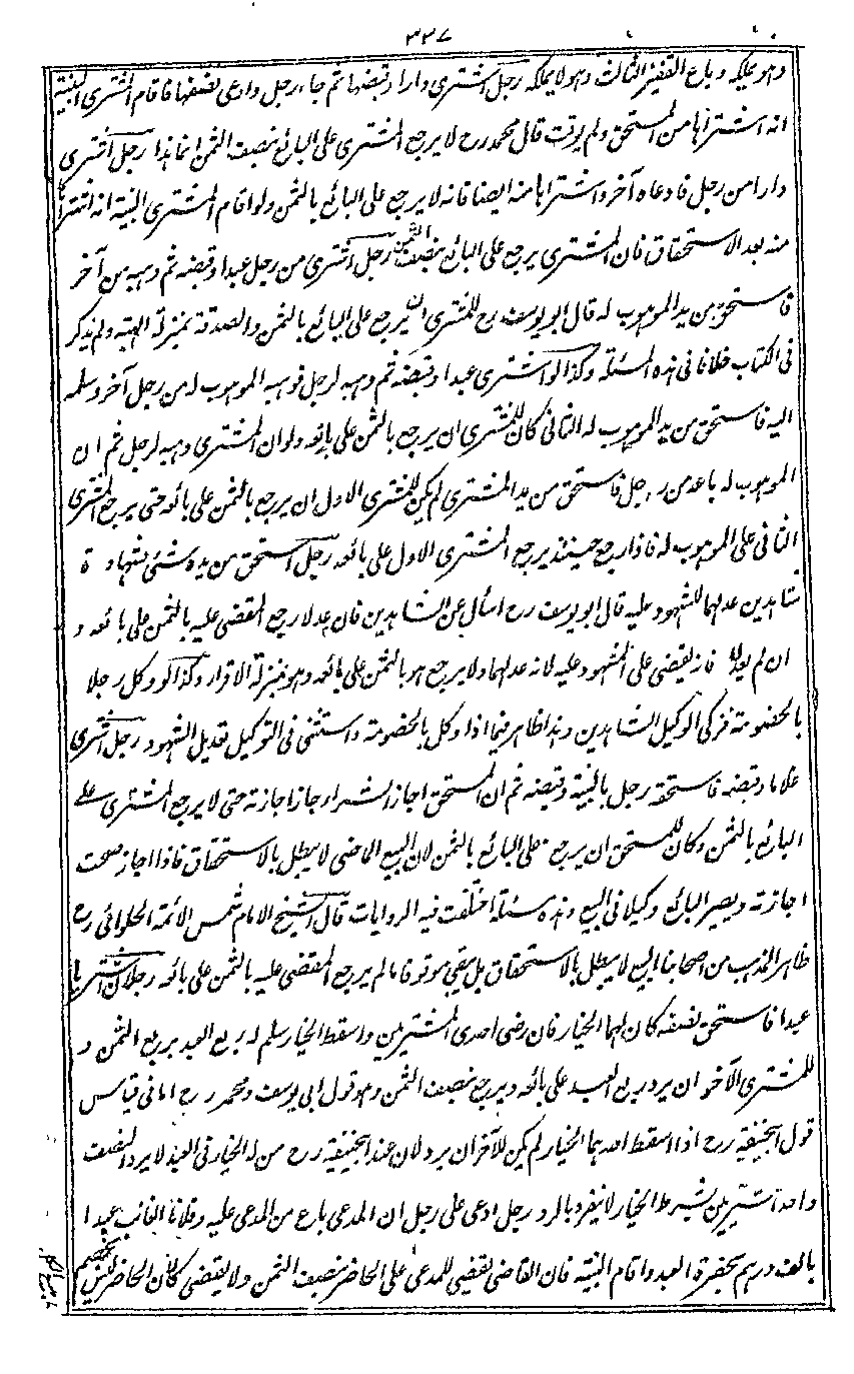 ٣٣٧
وهو يملكه وباع القفيز الثالث وهو لا يملكه رجل اشترى دارا وقبضها ثم جاء رجل وادعى نصفها فاقام المشتري البينة
انه اشتراها من المستحق ولم يوقت قال محمد رح لا يرجع المشتري على البائع بنصف الثمن انما هذا رجل اشترى
دارا من رجل فادعاه آخر واشتراها منه ايضا فانه لا يرجع على البائع بالثمن ولو اقام المشتري البينة انه اشتراها
منه بعد الاستحقاق فان المشتري يرجع على البائع بنصف الثمن رجل اشترى من رجل عبدا وقبضه ثم وهبه من آخر
فاستحق من يد الموهوب له قال ابو يوسف رح للمشتري ان يرجع على البائع بالثمن والصدقة بمنزلة الهبة ولم يذكر
في الكتاب خلافا في هذه المسئلة وكذا لو اشترى عبدا وقبضه ثم وهبه لرجل فوهبه الموهوب له من رجل آخر وسلمه
اليه فاستحق من يد الموهوب له الثاني كان للمشتري ان يرجع بالثمن على بائعه ولو ان المشتري وهبه لرجل ثم ان
الموهوب له باعه من رجل فاستحق من يد المشتري لم يكن للمشتري الاول ان يرجع بالثمن على بائعه حتى يرجع المشتري
الثاني على الموهوب له فاذا رجع حينئذ يرجع المشتري الاول على بائعه رجل استحق من يده شئ بشهادة
شاهدين عدلهما المشهود عليه قال ابو يوسف رح اسأل عن الشاهدين فان عدلا رجع المقضي عليه بالثمن على بائعه و
ان لم يعدلا فانه يقضى على المشهود عليه لانه عدلهما ولا يرجع هو بالثمن على بائعه وهو بمنزلة الاقرار وكذا لو وكل رجلا
بالخصومة فزكى الوكيل الشاهدين وهذا ظاهر فيما اذا وكل بالخصومة واستثنى في التوكيل تعديل الشهود رجل اشترى
غلاما وقبضه فاستحقه رجل بالبينة وقبضه ثم ان المستحق اجاز الشراء جاز اجازته حتى لا يرجع المشتري على
البائع بالثمن وكان للمستحق ان يرجع على البائع بالثمن لان البيع الماضي لا يبطل بالاستحقاق فاذا اجاز صحت
اجازته ويصير البائع وكيلا في البيع وهذه مسئلة اختلفت فيه الروايات قال الشيخ الامام شمس الائمة الحلوائي رح
ظاهر المذهب من اصحابنا البيع لا يبطل بالاستحقاق بل يبقى موقوفا ما لم يرجع المقضي عليه بالثمن على بائعه رجلان اشتريا
عبدا فاستحق نصفه كان لهما الخيار فان رضي احدى المشتريين واسقط الخيار سلم له ربع العبد بربع الثمن و
للمشتري الآخر ان يرد ربع العبد على بائعه ويرجع بنصف الثمن وهو قول ابي يوسف ومحمد رح اما في قياس
قول ابيحنيفة رح اذا اسقط احدهما الخيار لم يكن للآخر ان يرد لان عند ابيحنيفة رح من له الخيار في العبد لا يرد النصف
واحد المشتريين بشرط الخيار لا ينفرد بالرد رجل ادعى على رجل ان المدعي باع من المدعى عليه وفلانا الغائب عبدا
بالف درهم بحضرة العبد واقام البينة فان القاضي يقضي للمدعي على الحاضر بنصف الثمن ولا يقضي كان الحاضر ليس بخصم